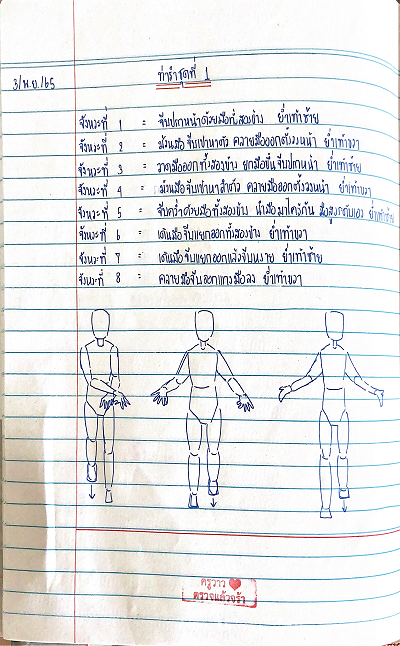 3/พ.ย./65
ท่ารำชุดที่ 1
จังหวะที่ 1 = จีบปกหน้าด้วยมือทั้งสองข้าง ย่ำเท้าซ้าย
จังหวะที่ 2 = ม้วนมือจีบเข้าหาตัว คลายมือออกตั้งวงหน้า ย่ำเท้าขวา
จังหวะที่ 3 = วาดมือออกทั้งสองข้าง ยกมือขึ้นจีบปกหน้า ย่ำเท้าซ้าย
จังหวะที่ 4 = ม้วนมือจีบเข้าหาลำตัว คลายมือออกตั้งวงหน้า ย่ำเท้าขวา
จังหวะที่ 5 = จีบคว่ำด้วยมือทั้งสองข้าง นำมือมาไขว้กัน มือสูงระดับเอว ย่ำเท้าซ้าย
จังหวะที่ 6 = เดินมือจีบแยกออกทั้งสองข้าง ย่ำเท้าขวา
จังหวะที่ 7 = เดินมือจีบแยกออกแล้วจีบหงาย ย่ำเท้าซ้าย
จังหวะที่ 8 = คลายมือจีบออกแทงมือลง ย่ำเท้าขวา
ครูวาว
ตรวจแล้วจร้า